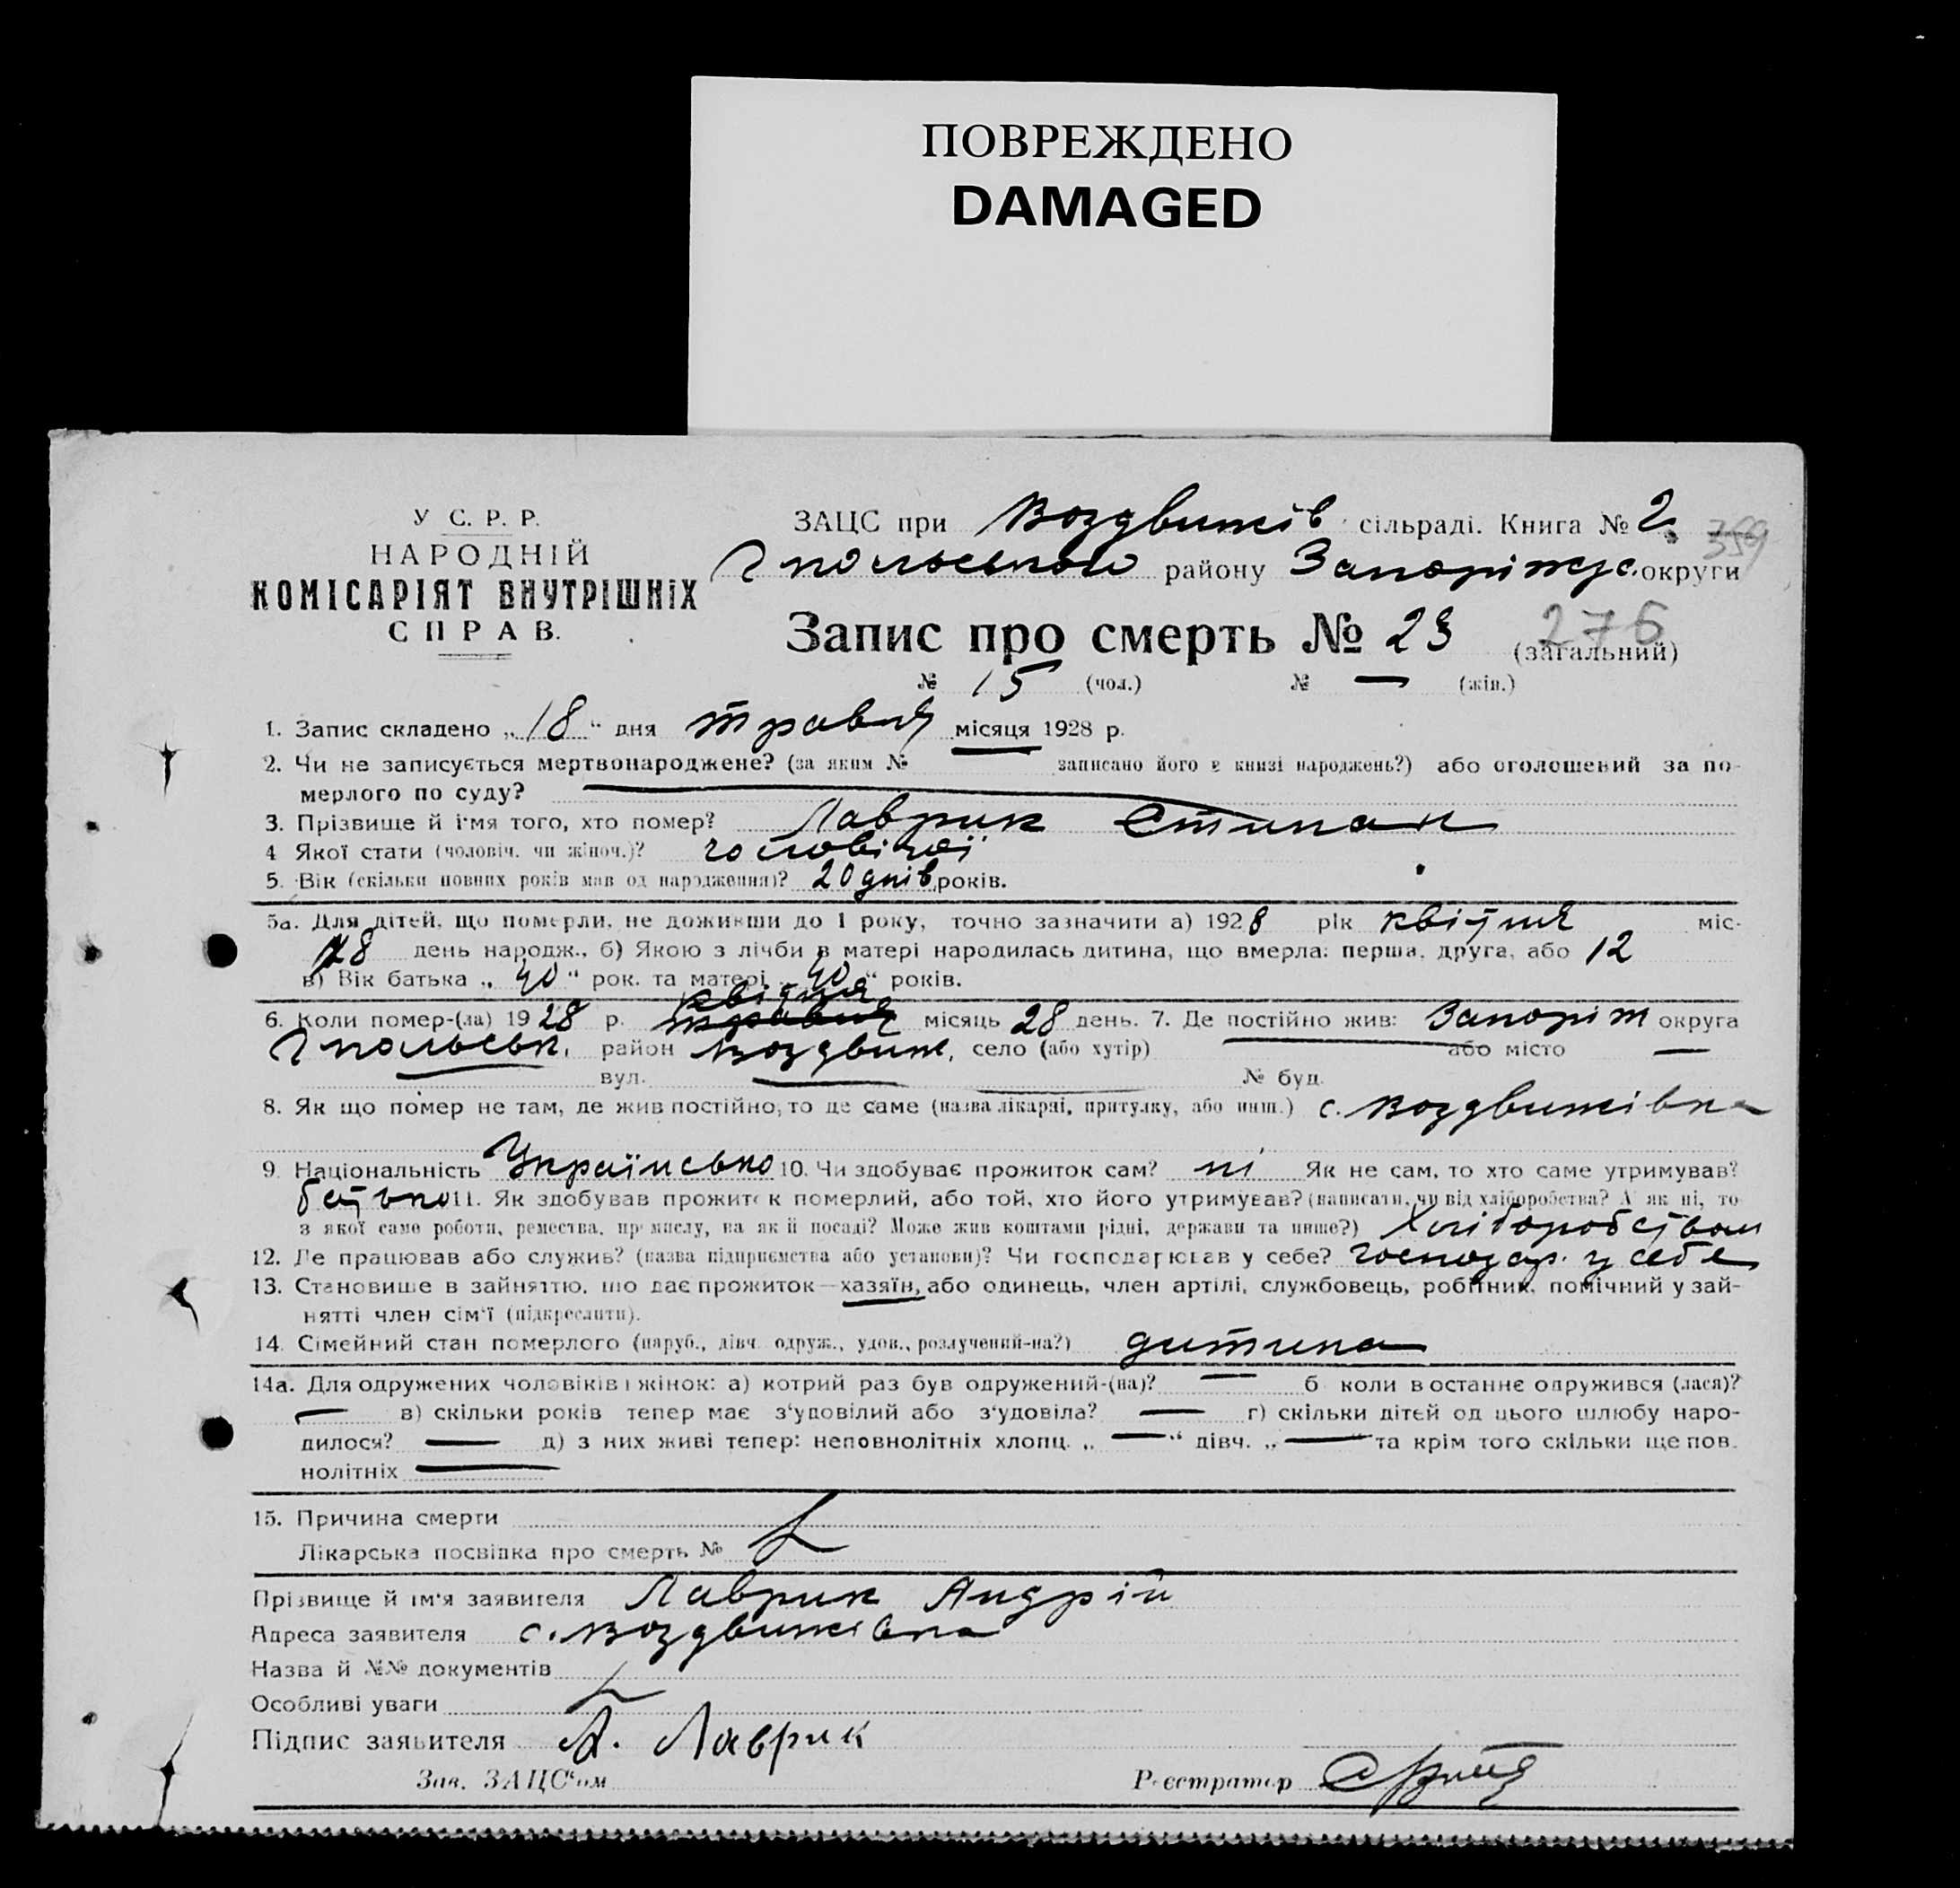 ПОВРЕЖДЕНО
DAMAGED
У С. Р. Р.
НАРОДНІЙ
КОМІСАРІЯТ ВНУТРІШНІХ
СПРАВ.
ЗАЦС при Воздвижів сільраді. Книга № 2
359
Гпольського району Запоріжс. округи
Запис про смерть № 23 (загальний)
276
№ 15 (чол.) № — (жін.)
1. Запис складено „18“ дня травня місяця 1928 р.
2. Чи не записується мертвонароджене? (за яким № записано його в книзі народжень?) або оголошений за по-
мерлого по суду?
3. Прізвище й ім'я того, хто помер? Лаврик Степан
4 Якої стати (чоловіч. чи жіноч.)? чоловічої
5. Вік (скільки повних років мав од народження)? 20 днів років.
5а. Для дітей, що померли, не доживши до 1 року, точно зазначити а) 1928 рік квітня міс-
8 день народж., б) Якою з лічби в матері народилась дитина, що вмерла: перша, друга, або 12
в) Вік батька „40“ рок. та матері „40“ років.
квітня
6. Коли помер-(ла) 1928 р. травня місяць 28 день. 7. Де постійно жив: Запоріж округа
Гпольськ. район Воздвиж, село (або хутір) або місто —
вул. № буд.
8. Як що помер не там, де жив постійно, то де саме (назва лікарні, притулку, або инш.) с. Воздвижівка
9. Національність Українсько 10. Чи здобуває прожиток сам? ні Як не сам, то хто саме утримував?
батько 11. Як здобував прожиток померлий, або той, хто його утримував? (написати, чи від хліборобства? А як ні, то
з якої саме роботи, ремества, промислу, на якій посаді? Може жив коштами рідні, держави та инше?) Хліборобством
12. Де працював або служив? (назва підприємства або установи)? Чи господарював у себе? господар. у себе
13. Становище в зайняттю, що дає прожиток—хазяїн, або одинець, член артілі, службовець, робітник, помічний у зай-
нятті член сім'ї (підкреслити).
14. Сімейний стан померлого (паруб., дівч. одруж., удов., розлучений-на?) дитина
14а. Для одружених чоловіків і жінок: а) котрий раз був одружений-(на)? — б коли востаннє одружився (лася)?
— в) скільки років тепер має з'удовілий або з'удовіла? — г) скільки дітей од цього шлюбу наро-
дилося? — д) з них живі тепер: неповнолітніх хлопц. „—“ дівч. „—“ та крім того скільки ще пов.
нолітніх —
15. Причина смерти
Лікарська посвідка про смерть №
Прізвище й ім'я заявителя Лаврик Андрій
Адреса заявителя с. Воздвижівка
Назва й №№ документів
Особливі уваги
Підпис заявителя А. Лаврик
Зав. ЗАЦС'ом Реєстратор